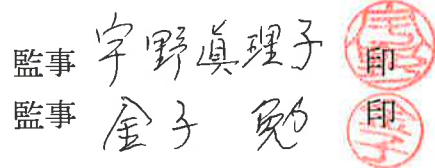 監事 宇野眞理子 印
監事 金子 勉 印